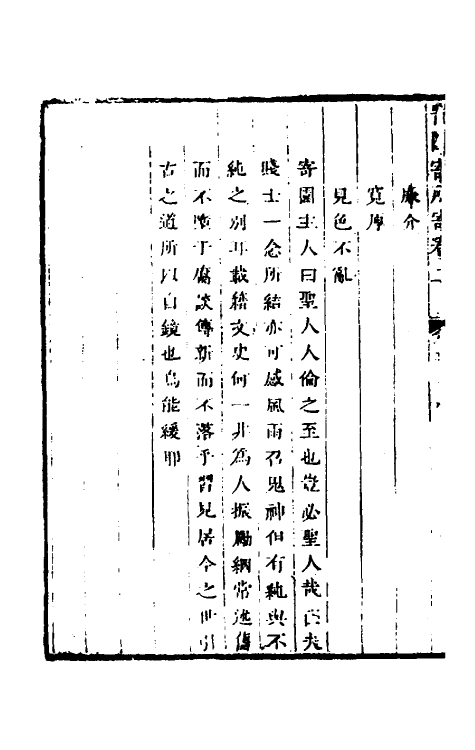 寄園寄所寄卷二
廉介
寬厚
見色不亂
寄園主人曰聖人人倫之至也豈必聖人哉匹夫
賤士一念所結亦可感風雨召鬼神但有純與不
純之別耳載籍文史何一非為人振勵綱常述傳
而不墮于腐談傳新而不落乎習見居今之世引
古之道所以自鏡也烏能緩耶